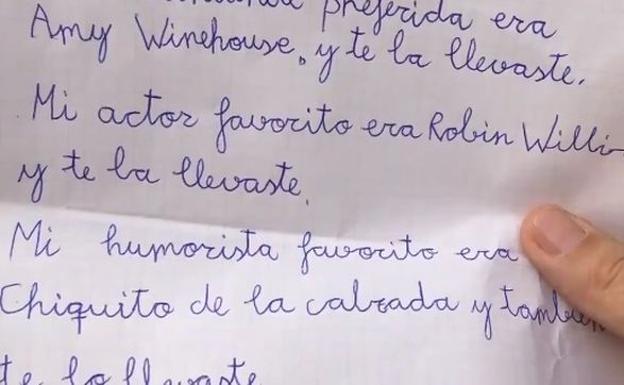 preferida era
Amy Winehouse, y te la llevaste.
Mi actor favorito era Robin Willi
y te la llevaste.
Mi humorista favorito era
Chiquito de la calzada y tambien
te lo llevaste